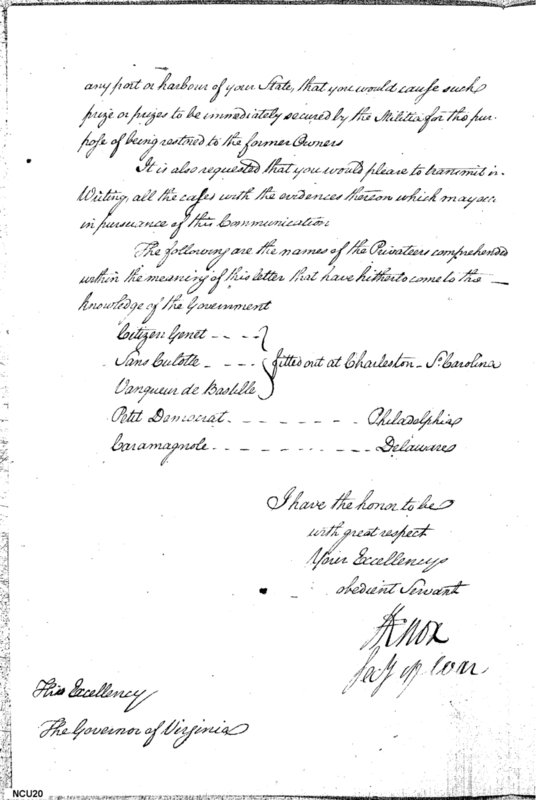 any port or harbour of your State, that you would cause such
prize or prizes to be immediately secured by the Militia for the pur-
pose of being restored to the former Owners
It is also requested that you would please to transmit in
Writing, all the cases with the evidences thereon which may occ
in pursuance of this Communication
The following are the names of the Privateers comprehended
within the meaning of this letter that have hitherto come to the —
knowledge of the Government
Citizen Genet - - - -
Sans Culotte - - - - fitted out at Charleston - So. Carolina
Vanqueur de Bastille
Petit Democrat - - - - - - - Philadelphia
Caramagnole - - - - - - - - - Delaware
I have the honor to be
with great respect
Your Excellency
obedient Servant
HKnox
Secy of War
His Excellency
The Governor of Virginia
NCU20